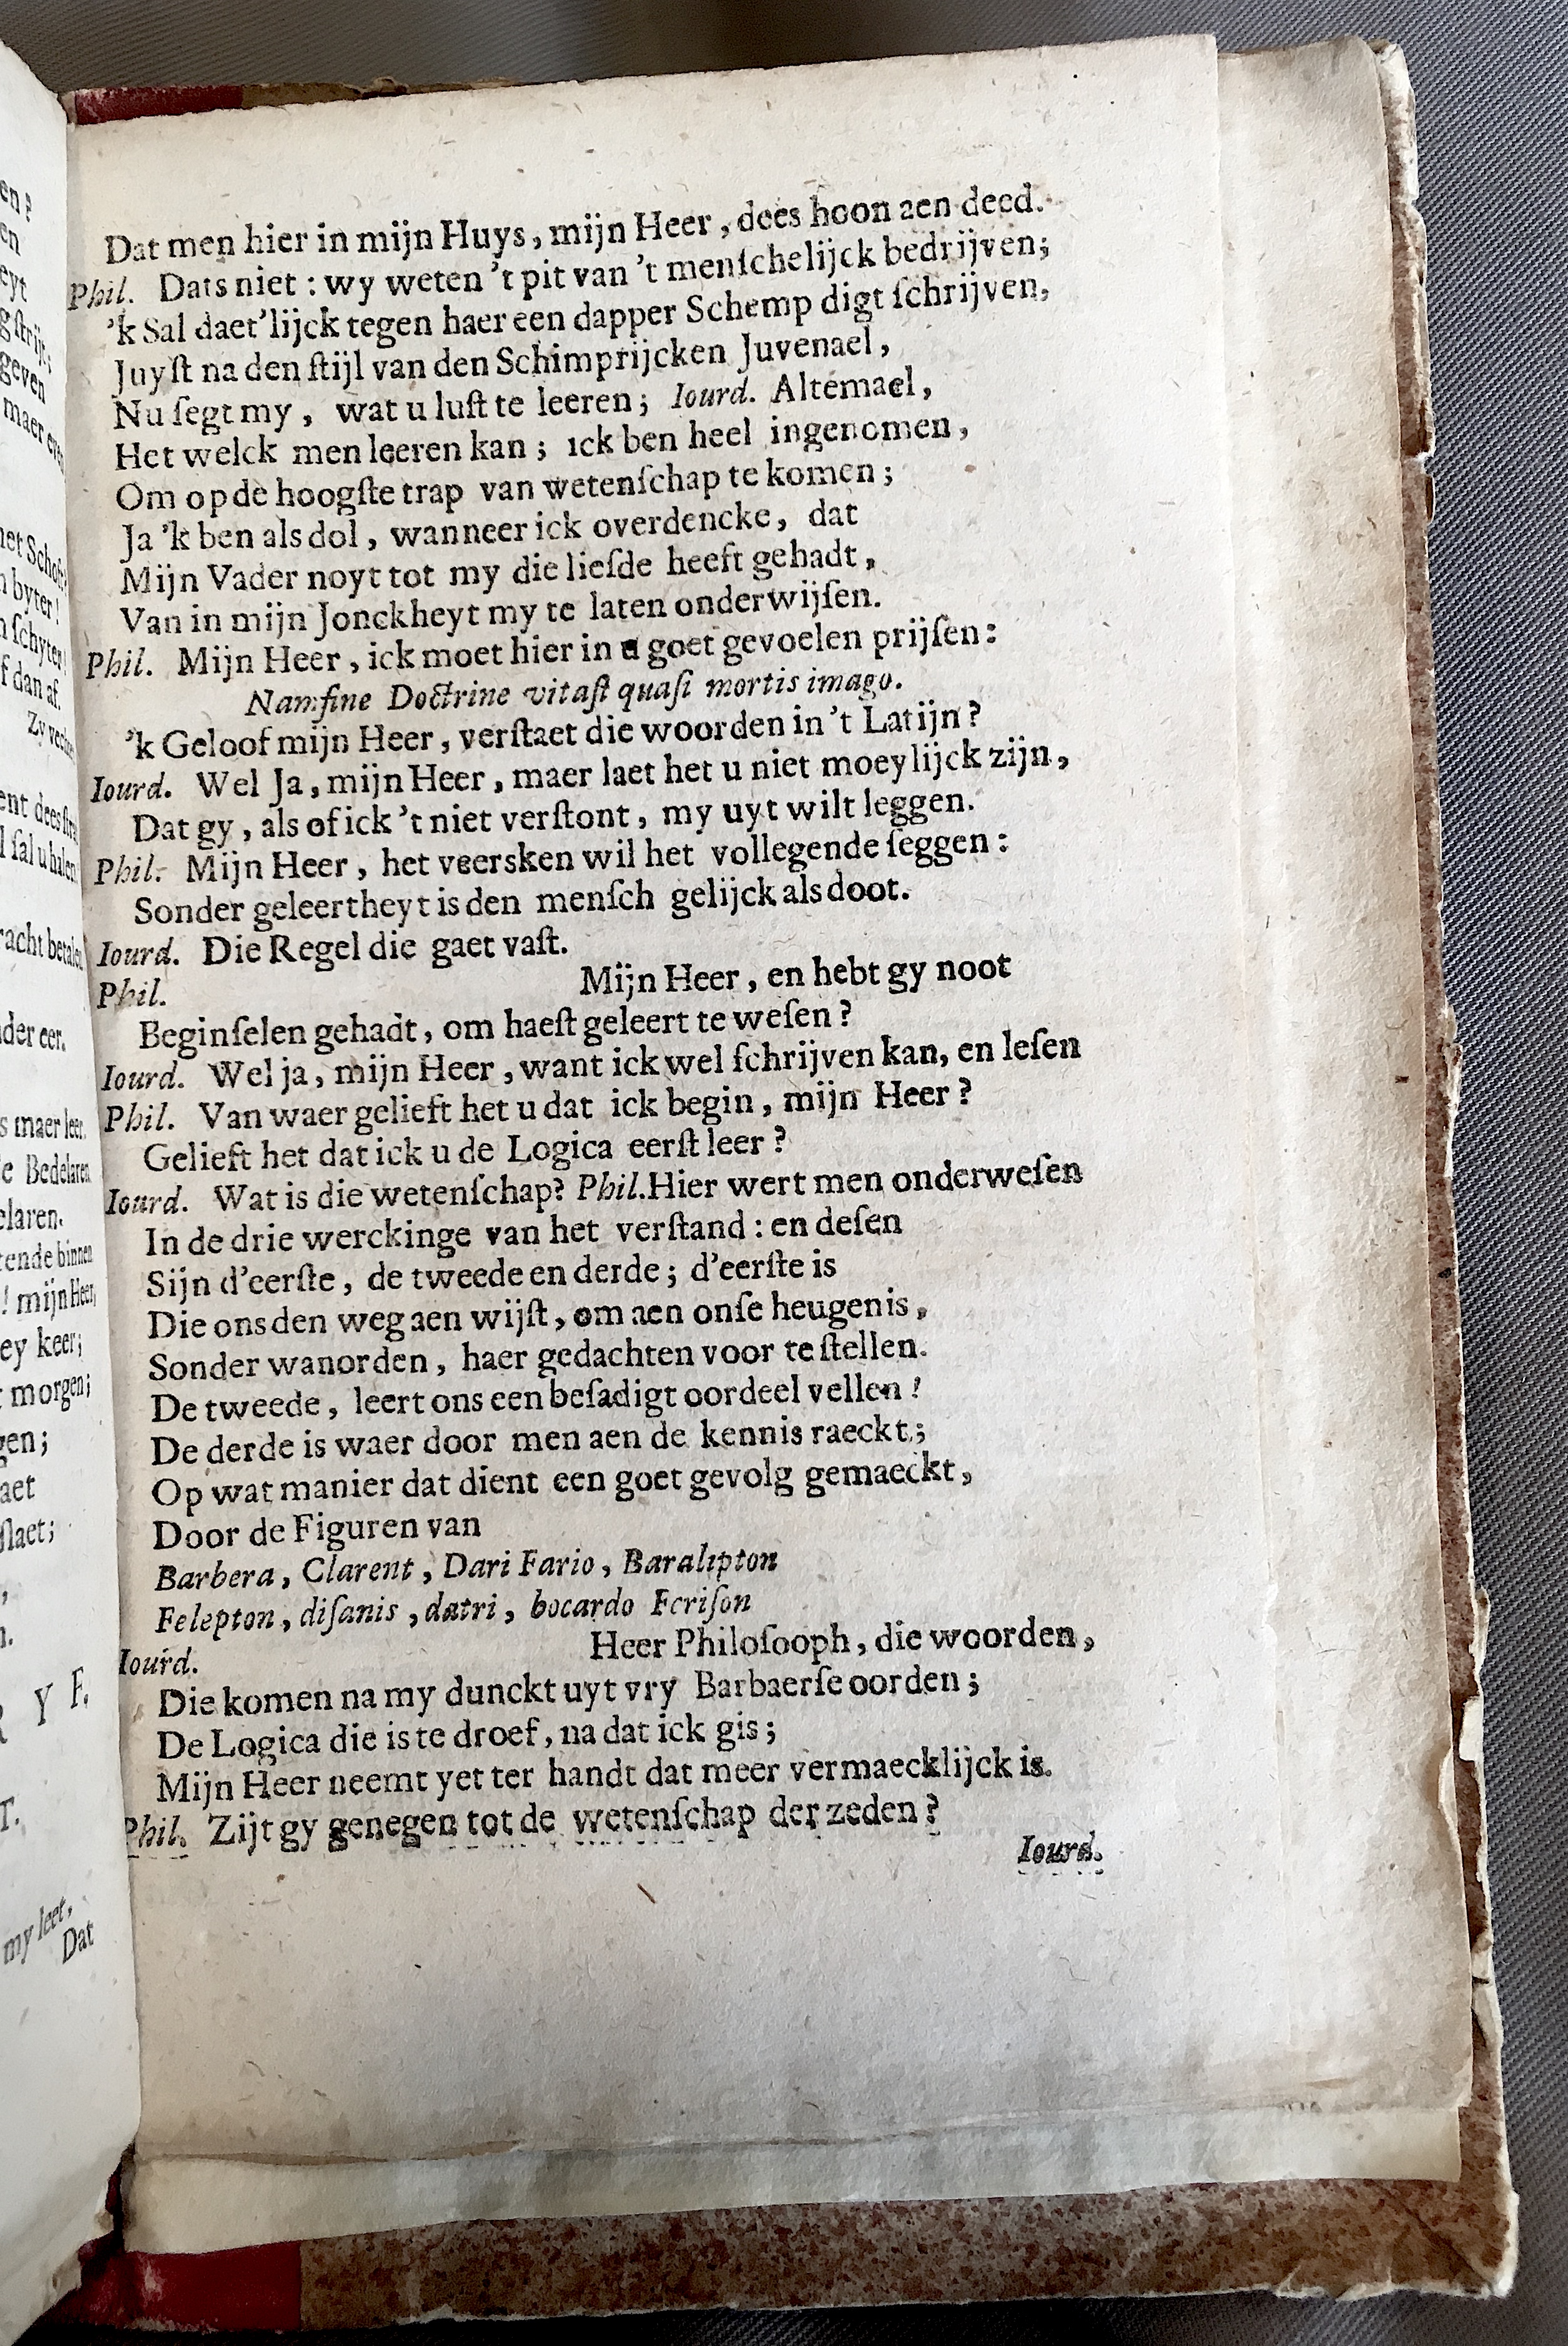 Dat men hier in mijn Huys, mijn Heer, dees hoon aen deed.
Phil. Dats niet: wy weten 't pit van 't menſchelijck bedrijven;
'k Sal daet'lijck tegen haer een dapper Schemp digt ſchrijven,
Juyſt na den ſtijl van den Schimprijcken Juvenael,
Nu ſegt my, wat u luſt te leeren; Iourd. Altemael,
Het welck men leeren kan; ick ben heel ingenomen,
Om op de hoogſte trap van wetenſchap te komen;
Ja 'k ben als dol, wanneer ick overdencke, dat
Mijn Vader noyt tot my die lieſde heeft gehadt,
Van in mijn Jonckheyt my te laten onderwijſen.
Phil. Mijn Heer, ick moet hier in u goet gevoelen prijſen:
Namſine Doctrine vitaſt quaſi mortis imago.
'k Geloof mijn Heer, verſtaet die woorden in 't Latijn?
Iourd. Wel Ja, mijn Heer, maer laet het u niet moeylijck zijn,
Dat gy, als of ick 't niet verſtont, my uyt wilt leggen.
Phil. Mijn Heer, het veersken wil het vollegende ſeggen:
Sonder geleertheyt is den menſch gelijck als doot.
Iourd. Die Regel die gaet vaſt.
Phil. Mijn Heer, en hebt gy noot
Beginſelen gehadt, om haeſt geleert te weſen?
Iourd. Wel ja, mijn Heer, want ick wel ſchrijven kan, en leſen
Phil. Van waer gelieft het u dat ick begin, mijn Heer?
Gelieft het dat ick u de Logica eerſt leer?
Iourd. Wat is die wetenſchap? Phil. Hier wert men onderweſen
In de drie werckinge van het verſtand: en deſen
Sijn d'eerſte, de tweede en derde; d'eerſte is
Die ons den weg aen wijſt, om aen onſe heugenis,
Sonder wanorden, haer gedachten voor te ſtellen.
De tweede, leert ons een beſadigt oordeel vellen!
De derde is waer door men aen de kennis raeckt;
Op wat manier dat dient een goet gevolg gemaeckt,
Door de Figuren van
Barbera, Clarent, Dari Fario, Baralipton
Felepton, diſanis, datri, bocardo Feriſon
Iourd. Heer Philoſooph, die woorden,
Die komen na my dunckt uyt vry Barbaerſe oorden;
De Logica die is te droef, na dat ick gis;
Mijn Heer neemt yet ter handt dat meer vermaecklijck is.
Phil. Zijt gy genegen tot de wetenſchap der zeden?
Iourd.